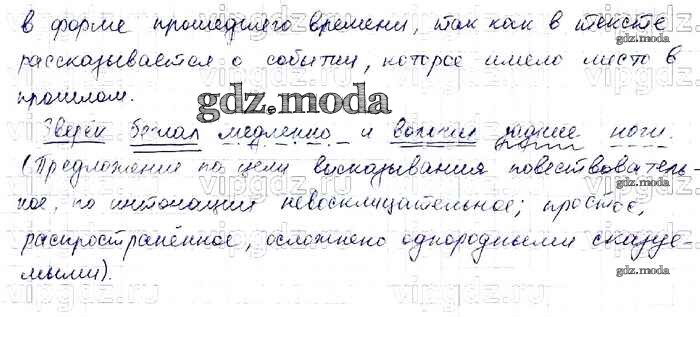 в форме прошедшего времени, так как в тексте
рассказывается о событии, которое имело место в
прошлом.
Зверёк бежал медленно и волочил задние ноги.
(Предложение по цели высказывания повествователь-
ное, по интонации невосклицательное; простое,
распространённое, осложнено однородными сказуе-
мыми).
gdz.moda
gdz.moda
gdz.moda
gdz.moda